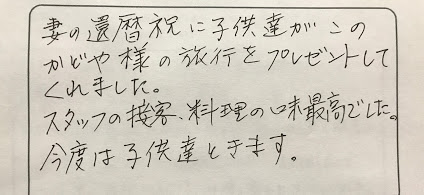 妻の還暦祝に子供達がこの
かどや様の旅行をプレゼントして
くれました。
スタッフの接客、料理の味最高でした。
今度は子供達ときます。